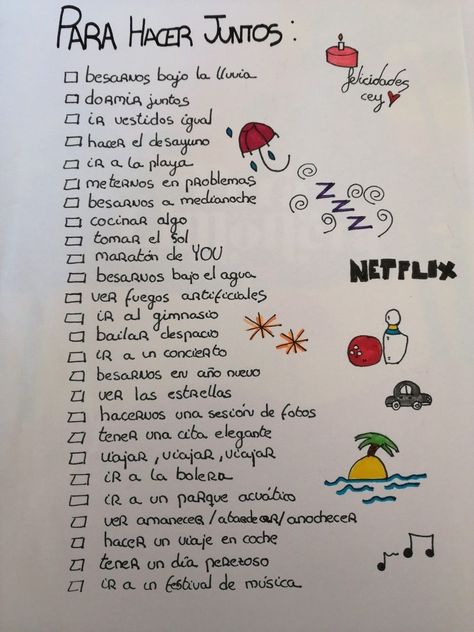 PARA HACER JUNTOS:
felicidades
cey
besarnos bajo la lluvia
dormir juntos
ir vestidos igual
hacer el desayuno
ir a la playa
meternos en problemas
besarnos a medianoche
cocinar algo
tomar el sol
maratón de YOU
besarnos bajo el agua
NETFLIX
ver fuegos artificiales
ir al gimnasio
bailar despacio
ir a un concierto
besarnos en año nuevo
ver las estrellas
hacernos una sesión de fotos
tener una cita elegante
viajar, viajar, viajar
ir a la bolera
ir a un parque acuático
ver amanecer/atardecer/anochecer
hacer un viaje en coche
tener un día perezoso
ir a un festival de música